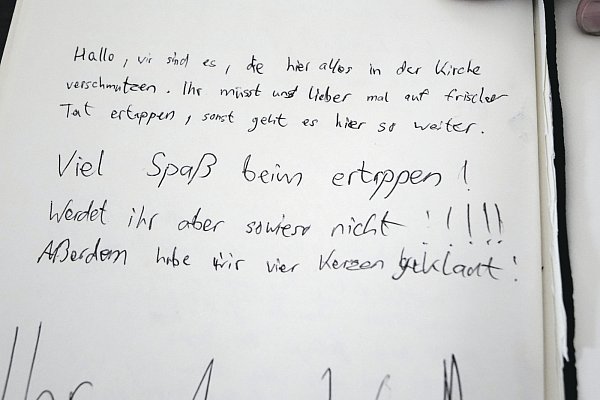 Hallo, wir sind es, die hier alles in der Kirche
verschmutzen. Ihr müsst uns lieber mal auf frischer
Tat ertappen, sonst geht es hier so weiter.
Viel Spaß beim ertappen!
Werdet ihr aber sowieso nicht!!!!!
Außerdem habe wir vier Kerzen geklaut!
Ihr